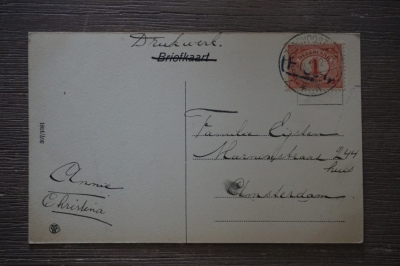 Drukwerk.
Briefkaart
1
Familie Eijsten
Marnixstraat 244
huis
Amsterdam
Annie
Christina